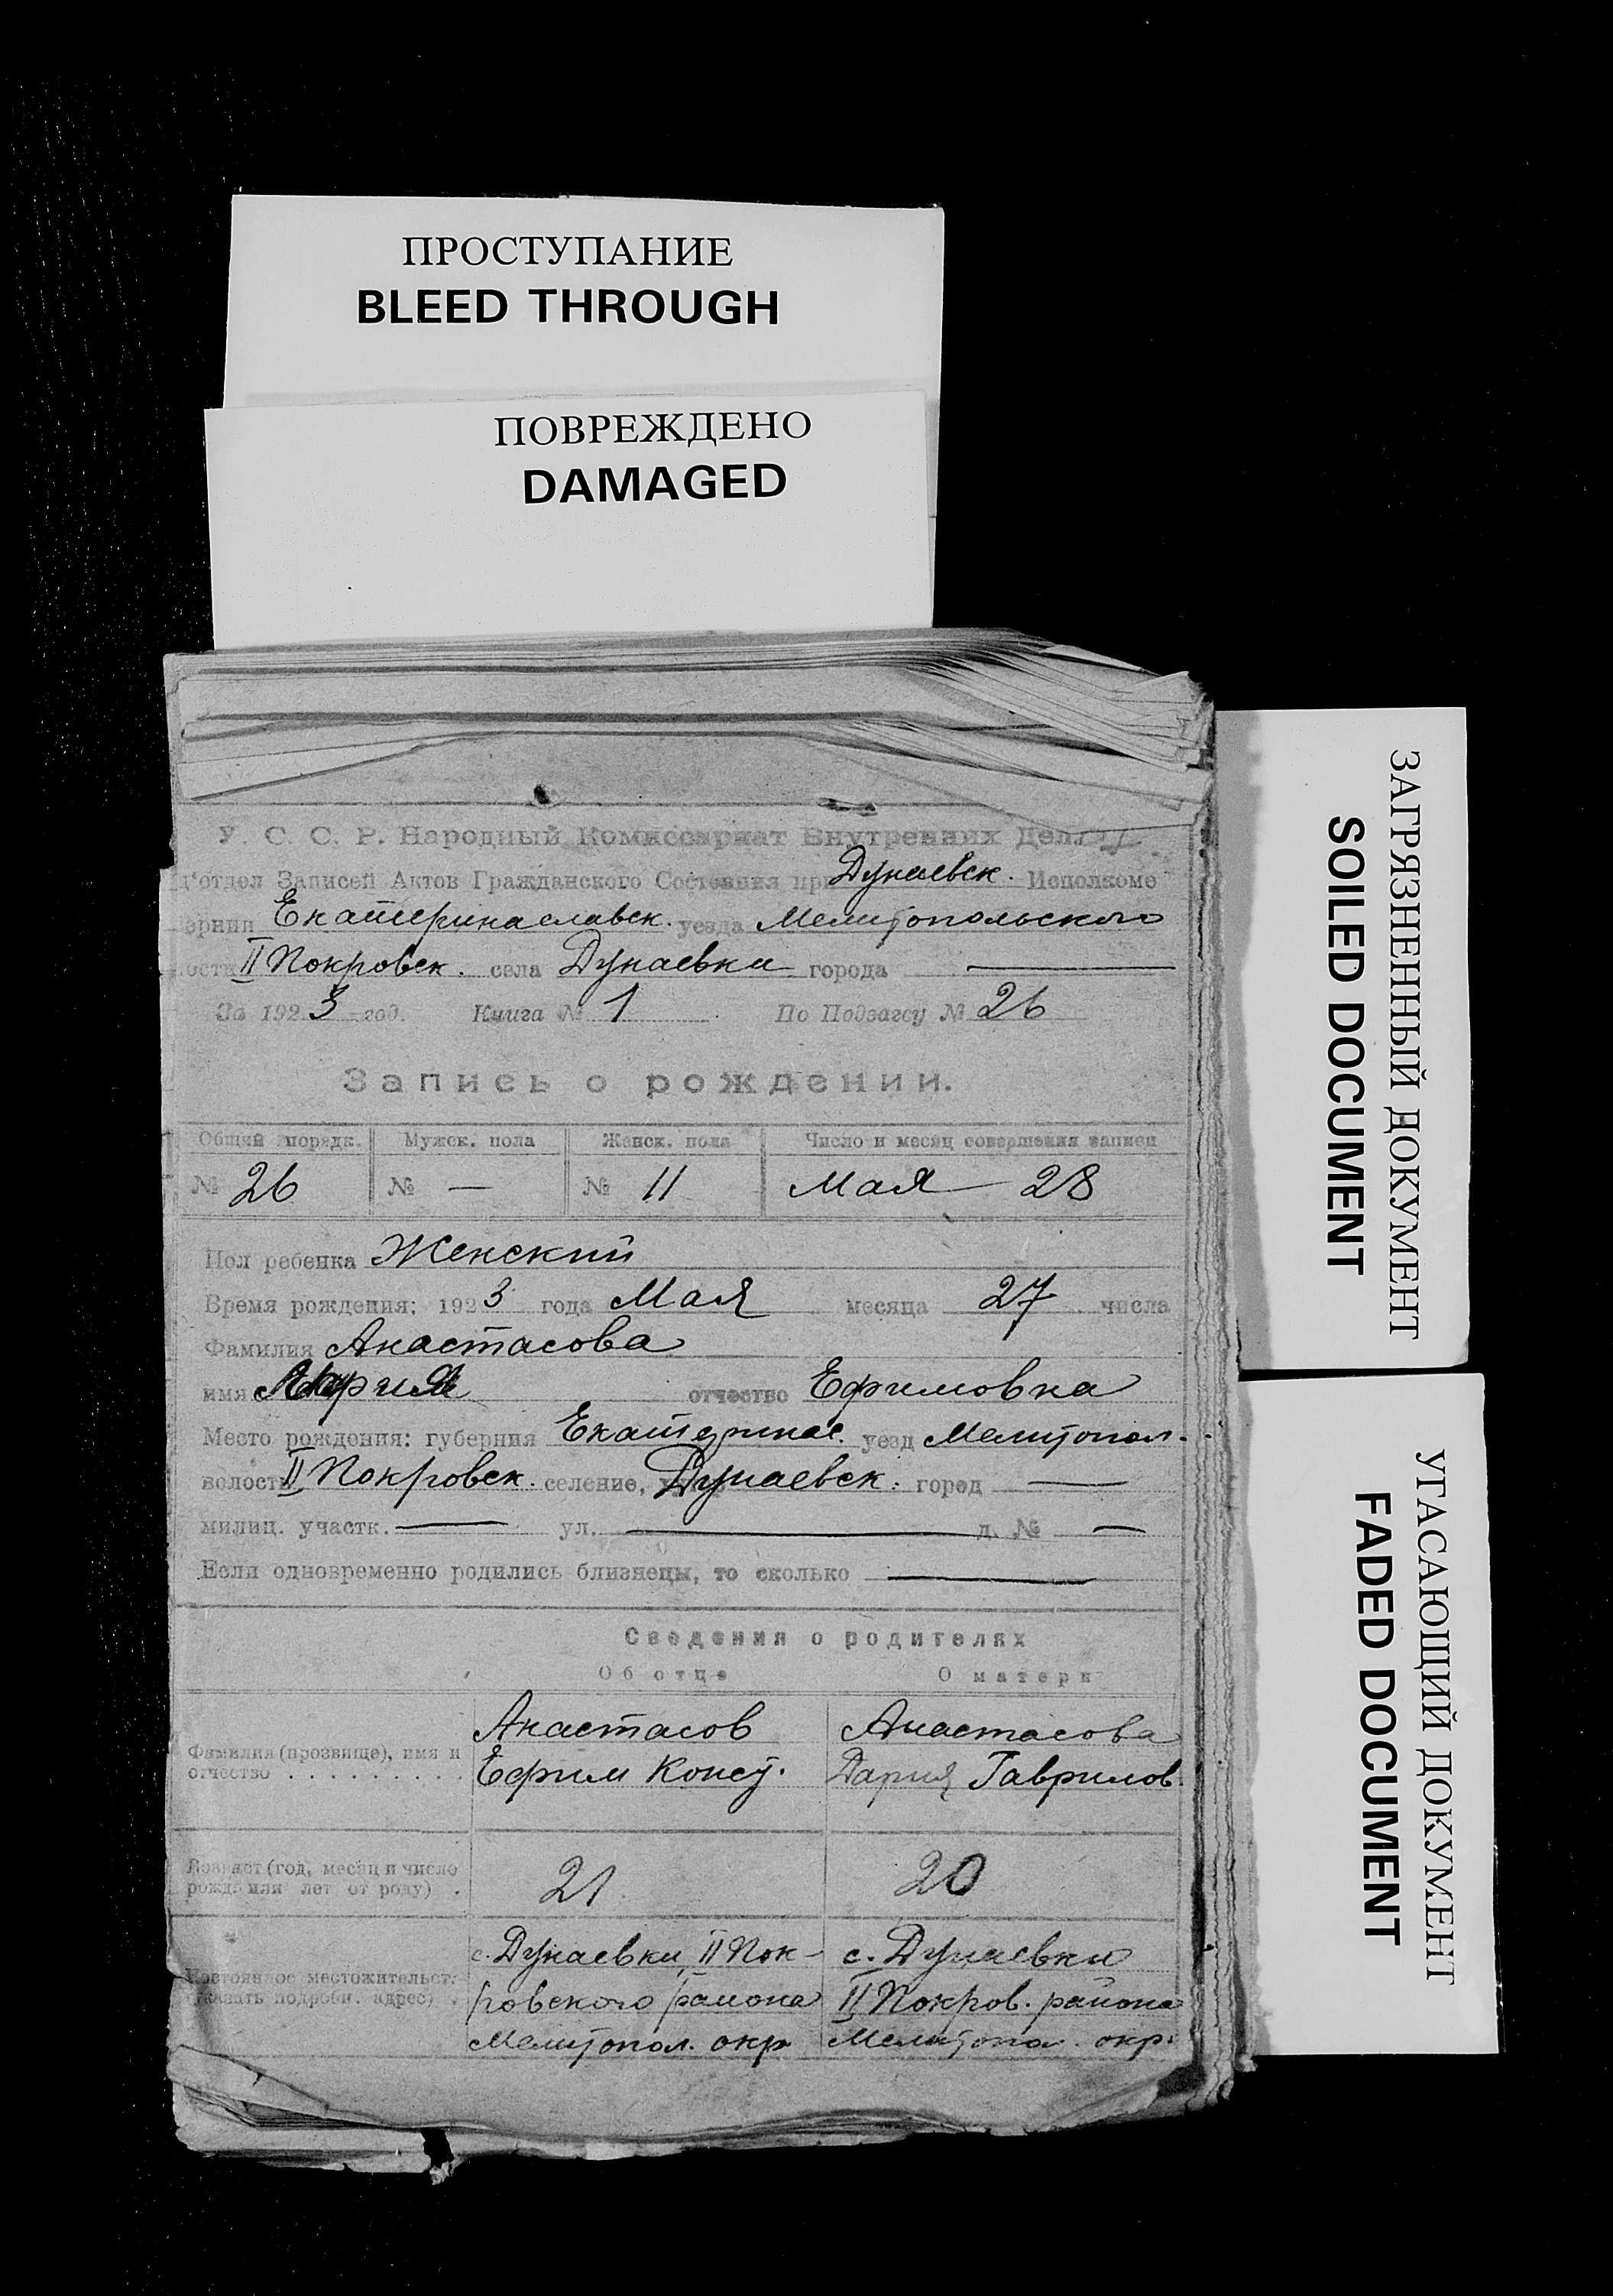 ПРОСТУПАНИЕ
BLEED THROUGH
ПОВРЕЖДЕНО
DAMAGED
У. С. С. Р. Народный Комиссариат Внутренних Дел.
п'отдел Записей Актов Гражданского Состояния при Дунаевск. Исполкоме
ернии Екатеринаславск. уезда Мелитопольского
ости II Покровск. села Дунаевки города —
За 1923 год. Книга № 1 По Подзагсу № 26
Запись о рождении.
Общий порядк. Мужск. пола Женск. пола Число и месяц совершения записи
№ 26 № — № 11 Мая 28
Пол ребенка Женский
Время рождения: 1923 года Мая месяца 27 числа
Фамилия Анастасова
имя Мария отчество Ефимовна
Место рождения: губерния Екатеринос. уезд Мелитопол.
волость II Покровск. селение, Дунаевск. город —
милиц. участк. — ул. — д. № —
Если одновременно родились близнецы, то сколько —
Сведения о родителях
Об отце О матери
Фамилия (прозвище), имя и отчество . . . . . . . . .
Анастасов
Ефим Конст.
Анастасова
Дария Гаврилов.
Возраст (год, месяц и число
рожд. или лет от роду) .
21 20
Постоянное местожительст.
(указать подробн. адрес) .
с. Дунаевки, II Пок-
ровского района
Мелитопол. окр
с. Дунаевки
II Покров. района
Мелитопол. окр.
ЗАГРЯЗНЕННЫЙ ДОКУМЕНТ
SOILED DOCUMENT
УГАСАЮЩИЙ ДОКУМЕНТ
FADED DOCUMENT